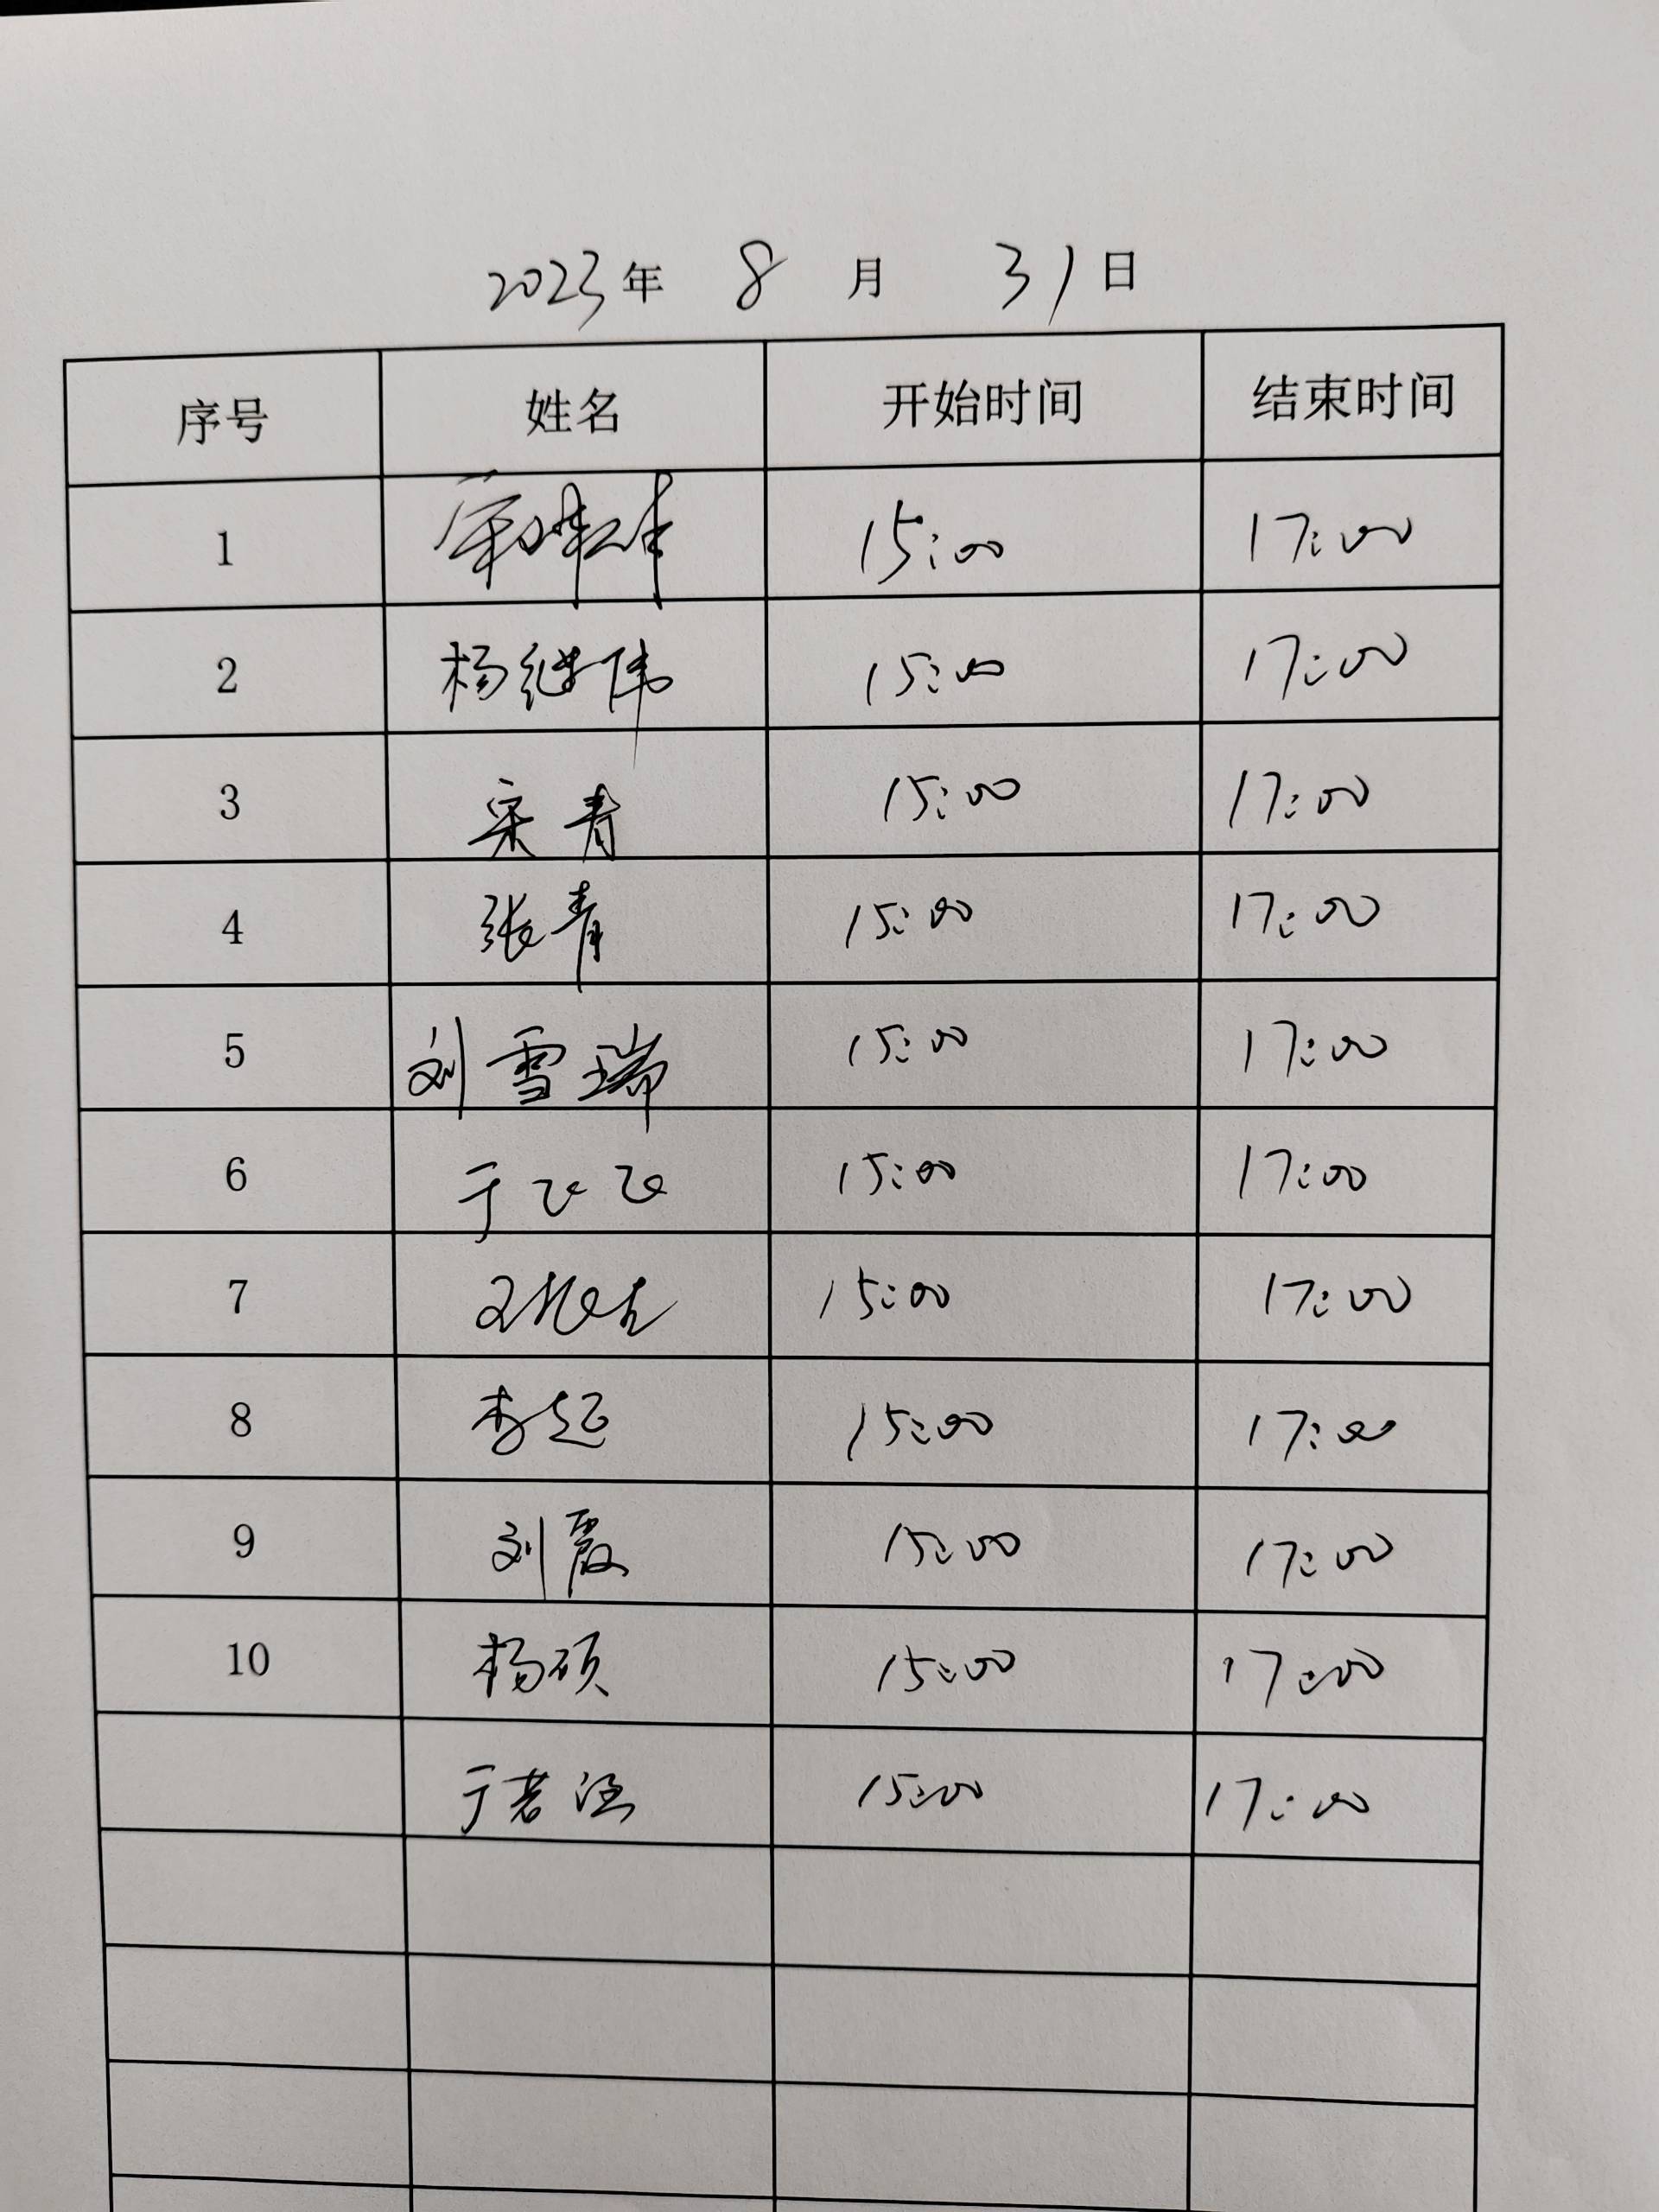 2023年 8 月 31日
序号 姓名 开始时间 结束时间
1 15:00 17:00
2 杨继伟 15:00 17:00
3 宋青 15:00 17:00
4 张青 15:00 17:00
5 刘雪瑞 15:00 17:00
6 于飞飞 15:00 17:00
7 15:00 17:00
8 李超 15:00 17:00
9 刘霞 15:00 17:00
10 杨硕 15:00 17:00
于若涵 15:00 17:00